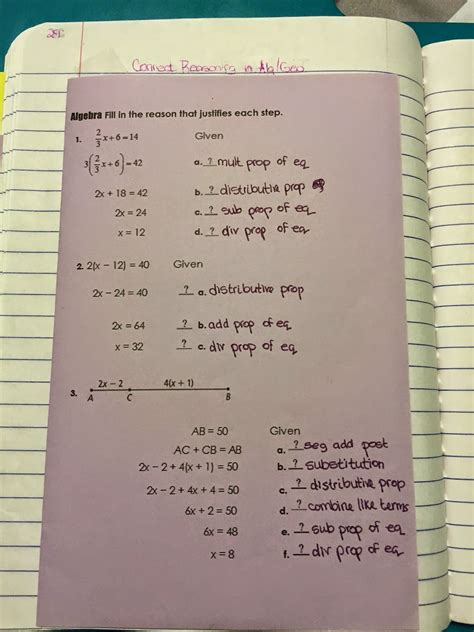 Correct Reasoning in Alg/Geo
Algebra Fill in the reason that justifies each step.
1. 2/3 x + 6 = 14 Given
3(2/3 x + 6) = 42 a. ? mult prop of eq
2x + 18 = 42 b. ? distributive prop
2x = 24 c. ? sub prop of eq
x = 12 d. ? div prop of eq
2. 2(x − 12) = 40 Given
2x − 24 = 40 ? a. distributive prop
2x = 64 ? b. add prop of eq
x = 32 ? c. div prop of eq
2x − 2 4(x + 1)
3. A C B
AB = 50 Given
AC + CB = AB a. ? seg add post
2x − 2 + 4(x + 1) = 50 b. ? substitution
2x − 2 + 4x + 4 = 50 c. ? distributive prop
6x + 2 = 50 d. ? combine like terms
6x = 48 e. ? sub prop of eq
x = 8 f. ? div prop of eq